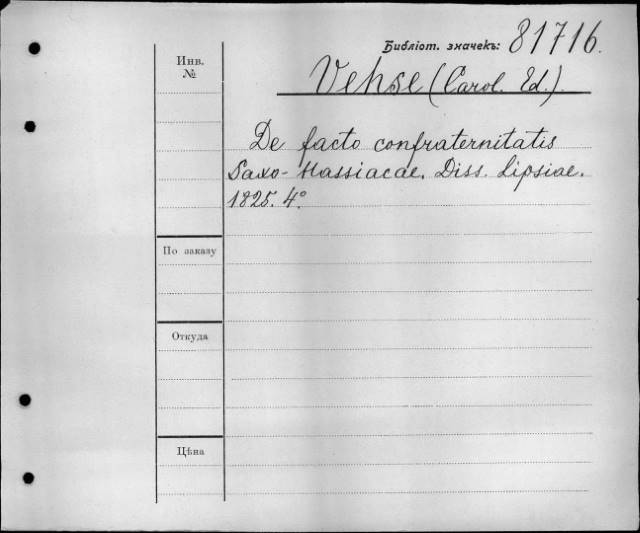 Библіот. значекъ: 81716.
Инв.
№
Vehse (Carol. Ed.)
De facto confraternitatis
Saxo-Hassiacae. Diss. Lipsiae.
1825. 4°.
По заказу
Откуда
Цѣна